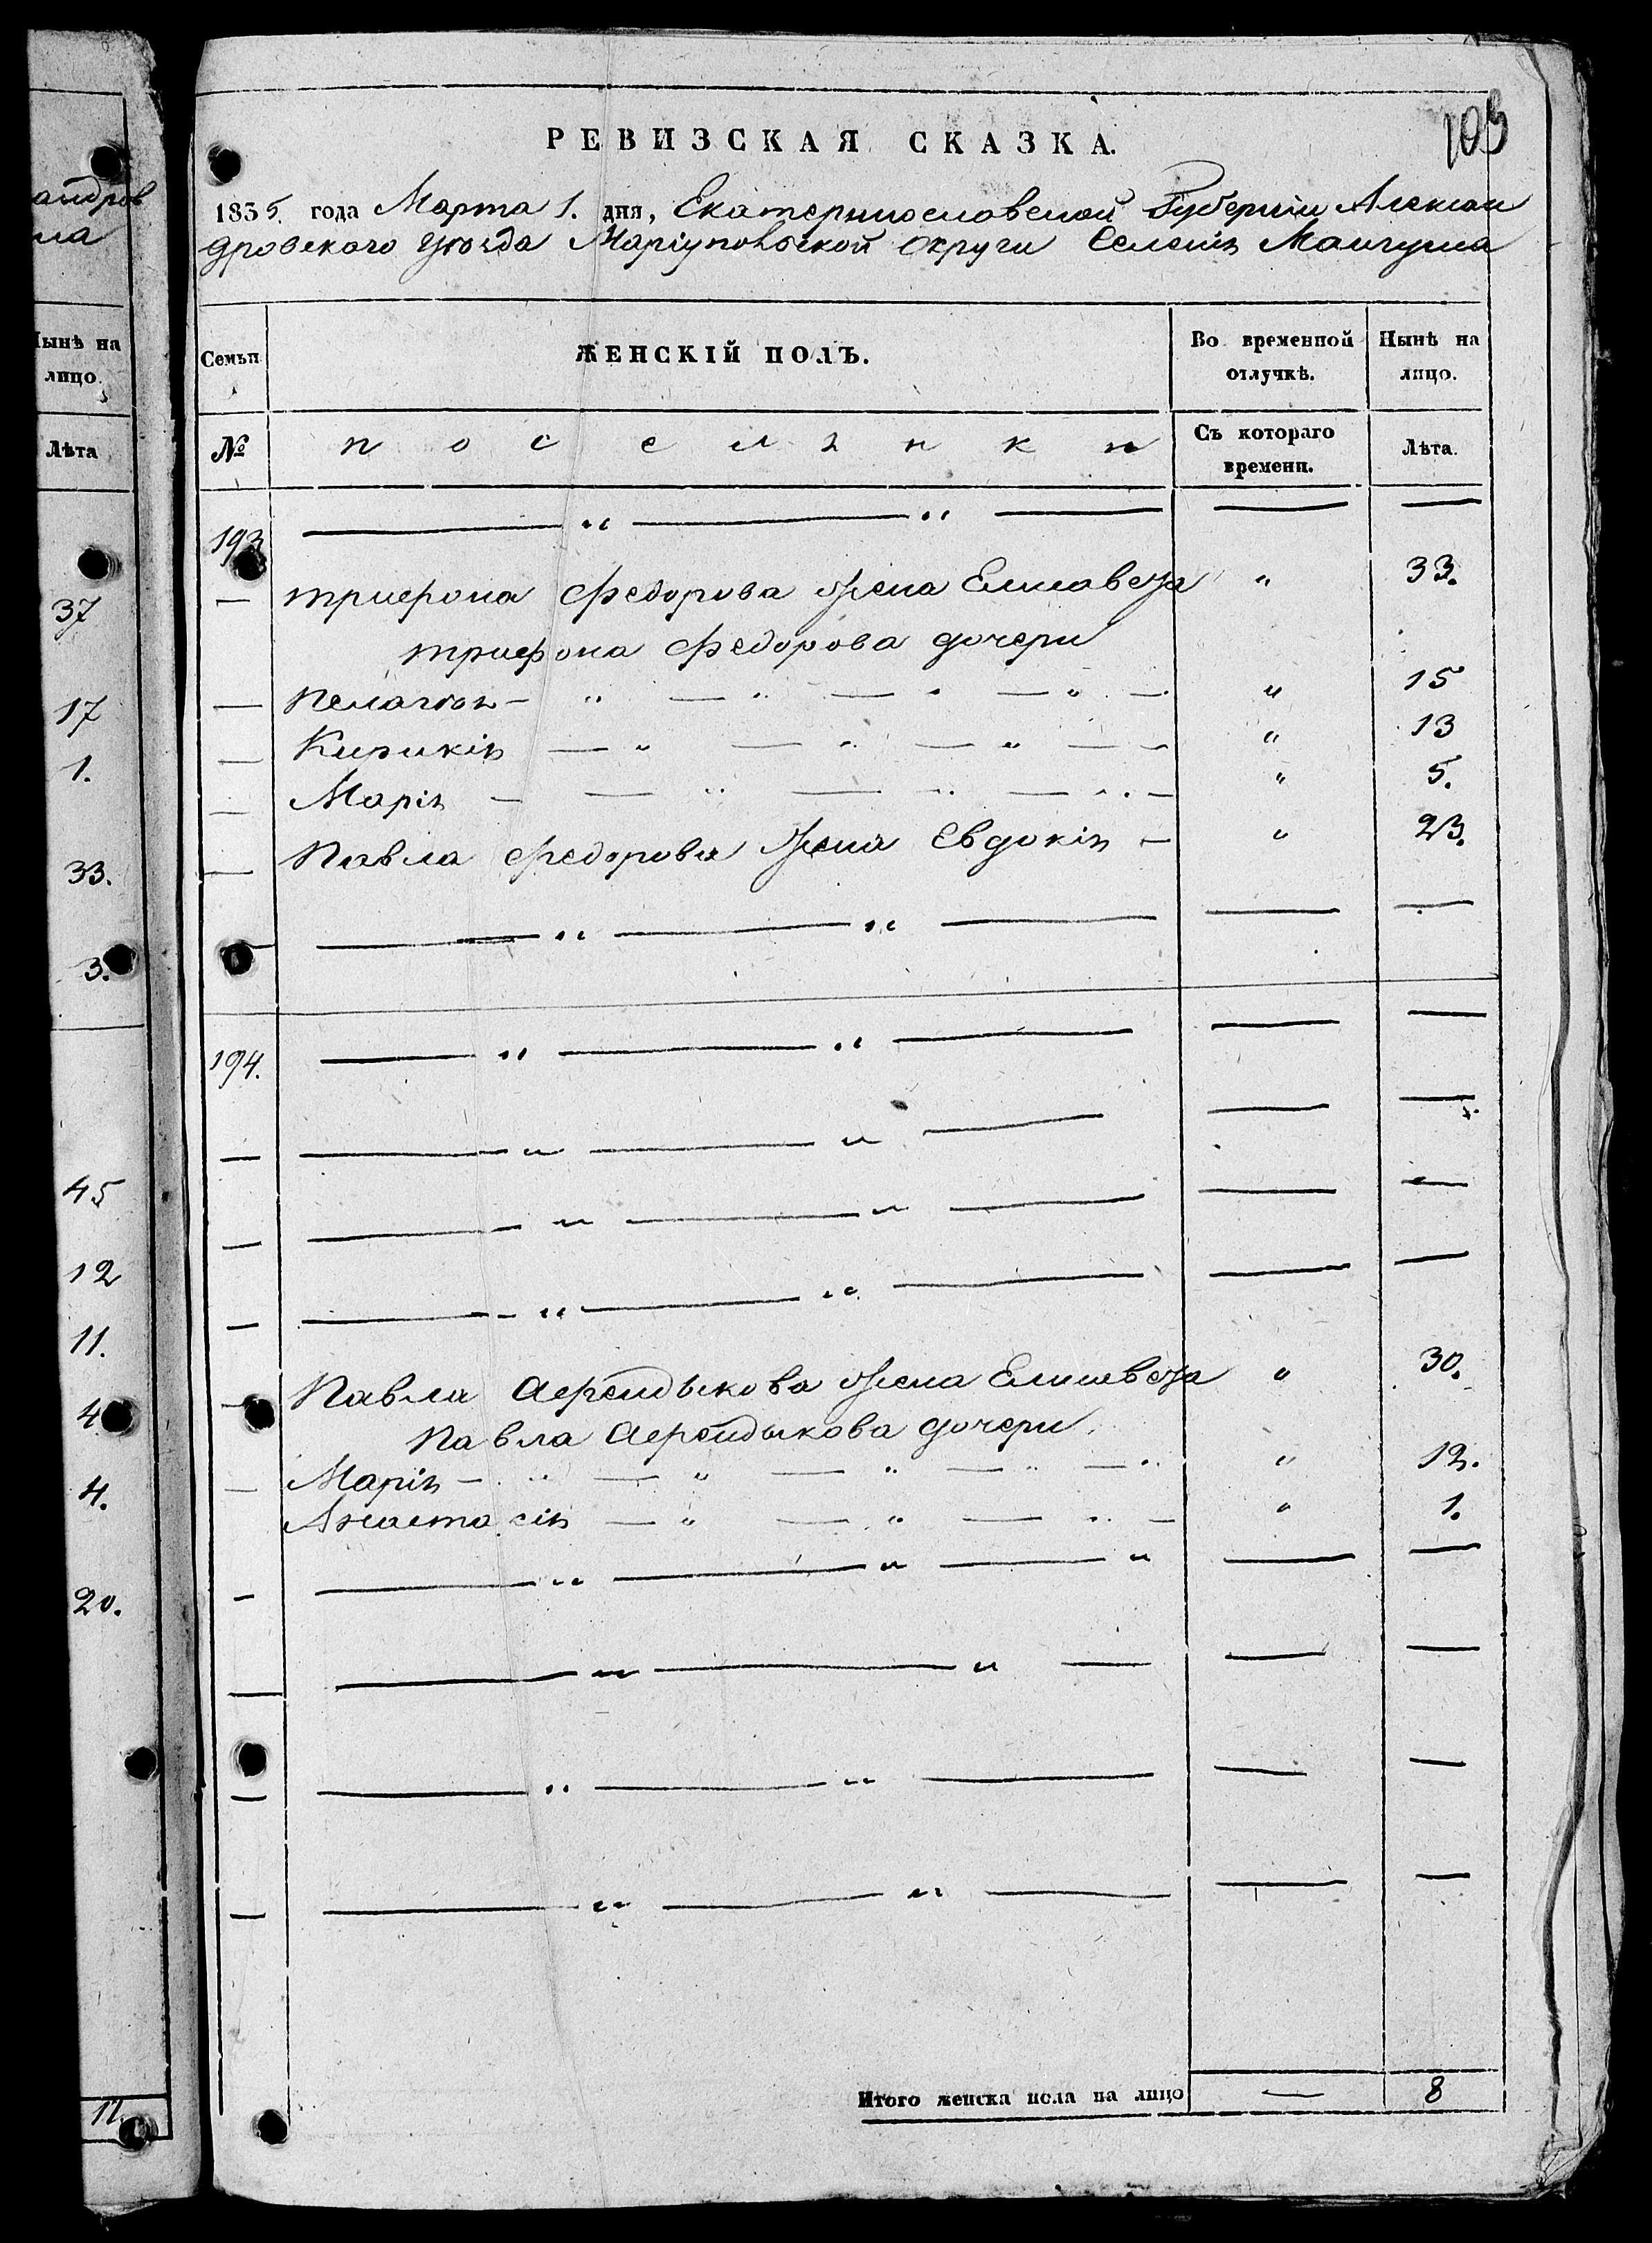 андров
ла
Нынѣ на
лицо.
Лѣта
37
17
1.
33.
3.
45
12
11.
4
4.
20.
11.
105
РЕВИЗСКАЯ СКАЗКА.
1835. года Марта 1. дня, Екатеринославской Губерніи Алексан
дровского уѣзда Маріупольской округи Селенія Мангуша
Семьи
ЖЕНСКІЙ ПОЛЪ.
Во временной отлучкѣ.
Нынѣ на лицо.
№
поселянки
Съ котораго времени.
Лѣта.
193
Трифона Федорова жена Елисавета " 33.
Трифона Федорова дочери
Пелагѣя — " — " — " — " — " 15
Кирикія — " — " — " — " 13
Марія — — " — " — " — " 5.
Павла Федорова жена Евдокія — " 23.
194.
Павла Аерендыкова жена Елисавета " 30.
Павла Аерендыкова дочери
Марія — " — " — " — " — " " 12.
Анастасія — " — " — " — " 1.
Итого женска пола на лицо — 8